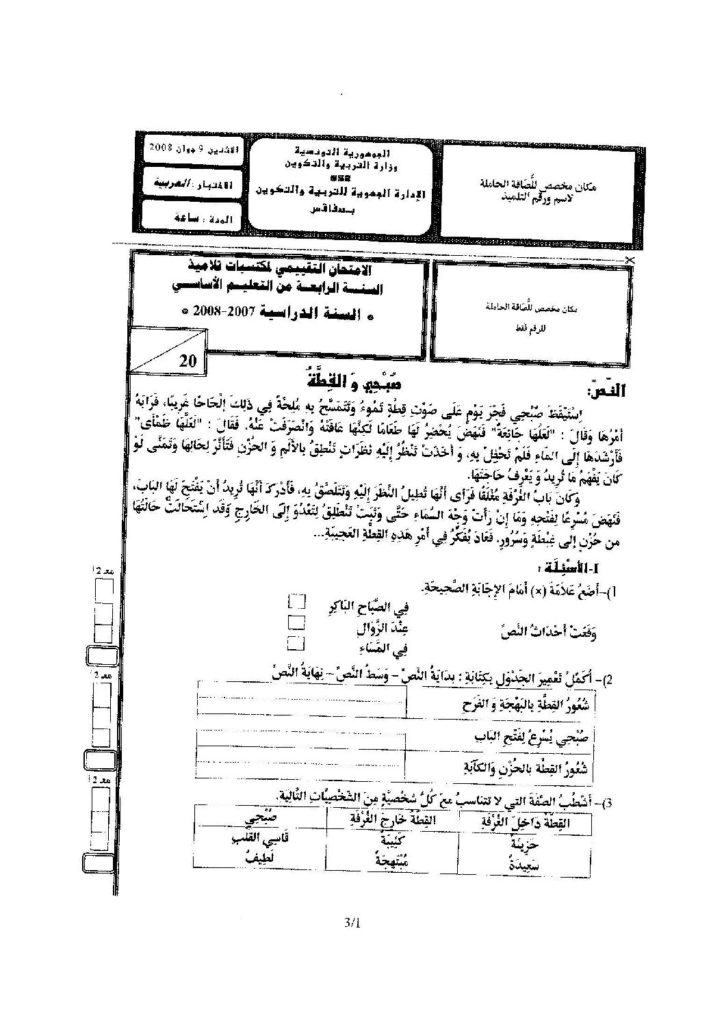 مكان مخصص للصاقة الحاملة
لاسم ورقم التلميذ
الجمهورية التونسية
وزارة التربية والتكوين
الإدارة الجهوية للتربية والتكوين
بصفاقس
الاثنين 9 جوان 2008
الاختبار : العربية
المدة : ساعة
مكان مخصص للصاقة الحاملة
للرقم فقط
الامتحان التقييمي لمكتسبات تلاميذ
السنة الرابعة من التعليم الأساسي
* السنة الدراسية 2007-2008 *
20
النّصّ:
صُبْحِي وَ القِطَّةُ
اِسْتَيْقَظَ صُبْحِي فَجْرَ يَوْمٍ عَلَى صَوْتِ قِطَّةٍ تَمُوءُ وَتَتَمَسَّحُ بِهِ مُلِحَّةً فِي ذَلِكَ إِلْحَاحًا غَرِيبًا، فَرَابَهُ
أَمْرُهَا وَقَالَ : "لَعَلَّهَا جَائِعَةٌ" فَنَهَضَ يُحْضِرُ لَهَا طَعَامًا لَكِنَّهَا عَافَتْهُ وَانْصَرَفَتْ عَنْهُ. فَقَالَ : "لَعَلَّهَا ظَمْأَى"
فَأَرْشَدَهَا إِلَى المَاءِ فَلَمْ تَحْفِلْ بِهِ، وَ أَخَذَتْ تَنْظُرُ إِلَيْهِ نَظَرَاتٍ تَنْطِقُ بِالأَلَمِ وَ الحُزْنِ فَتَأَثَّرَ لِحَالِهَا وَتَمَنَّى لَوْ
كَانَ يَفْهَمُ مَا تُرِيدُ وَ يَعْرِفُ حَاجَتَهَا.
وَكَانَ بَابُ الغُرْفَةِ مُغْلَقًا فَرَأَى أَنَّهَا تُطِيلُ النَّظَرَ إِلَيْهِ وَتَتَلَصَّقُ بِهِ، فَأَدْرَكَ أَنَّهَا تُرِيدُ أَنْ يَفْتَحَ لَهَا البَابَ،
فَنَهَضَ مُسْرِعًا لِفَتْحِهِ وَمَا إِنْ رَأَتْ وَجْهَ السَّمَاءِ حَتَّى وَثَبَتْ تَنْطَلِقُ لِتَعْدُوَ إِلَى الخَارِجِ وَقَدِ اسْتَحَالَتْ حَالَتُهَا
من حُزْنٍ إِلى غِبْطَةٍ وَسُرُورٍ. فَعَادَ يُفَكِّرُ فِي أَمْرِ هَذِهِ القِطَّةِ العَجِيبَةِ...
I-الأَسْئِلَة :
1)- أَضَعُ عَلاَمَةَ (x) أَمَامَ الإِجَابَةِ الصَّحِيحَةِ.
فِي الصَّبَاحِ البَاكِرِ
وَقَعَتْ أَحْدَاثُ النَّصِّ
عِنْدَ الزَّوَالِ
فِي المَسَاءِ
مع 2
2)- أُكْمِلُ تَعْمِيرَ الجَدْوَلِ بِكِتَابَةِ : بِدَايَةُ النَّصِّ - وَسَطُ النَّصِّ - نِهَايَةُ النَّصِّ
شُعُورُ القِطَّةِ بِالبَهْجَةِ وَ الفَرَحِ
صُبْحِي يُسْرِعُ لِفَتْحِ البَاب
شُعُورُ القِطَّةِ بِالحُزْنِ وَالكَآبَةِ
مع 2
3)- أَشْطُبُ الصِّفَةَ التي لاَ تَتَنَاسَبُ مَعَ كُلِّ شَخْصِيَّةٍ مِنَ الشَّخْصِيَّاتِ التَّالِيَةِ.
القِطَّةُ دَاخِلَ الغُرْفَةِ القِطَّةُ خَارِجَ الغُرْفَةِ صُبْحِي
حَزِينَةٌ كَئِيبَةٌ قَاسِي القَلْبِ
سَعِيدَةٌ مُبْتَهِجَةٌ لَطِيفٌ
مع 2
3/1